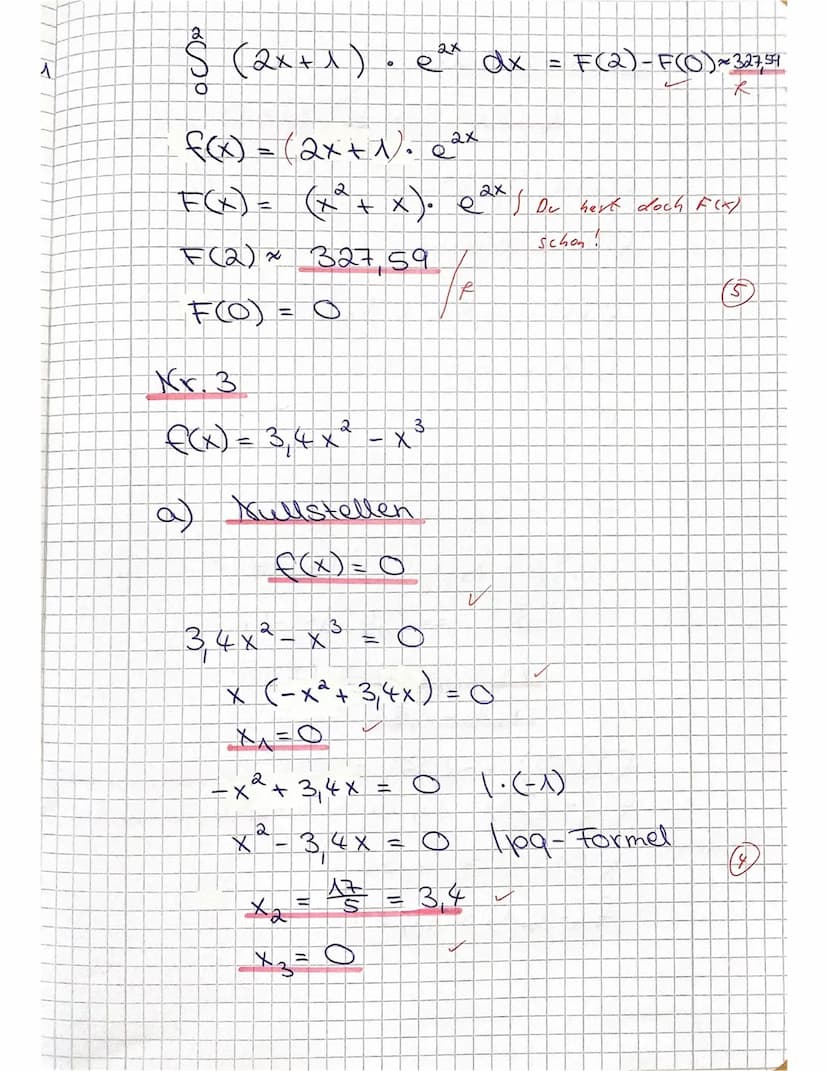 1
∫₀² (2x+1) · e^{2x} dx = F(2)-F(0) ≈ 327,59
✓ f
f(x) = (2x+1) · e^{2x}
F(x) = (x² + x) · e^{2x} ∫ Du hast doch F(x)
schon!
F(2) ≈ 327,59
f
F(0) = 0
⑤
Nr. 3
f(x) = 3,4x² - x³
a) Nullstellen
f(x) = 0
✓
3,4x² - x³ = 0
x (-x² + 3,4x) = 0 ✓
x₁ = 0 ✓
-x² + 3,4x = 0 | · (-1)
x² - 3,4x = 0 | pq-Formel
④
x₂ = 17/5 = 3,4 ✓
x₃ = 0 ✓